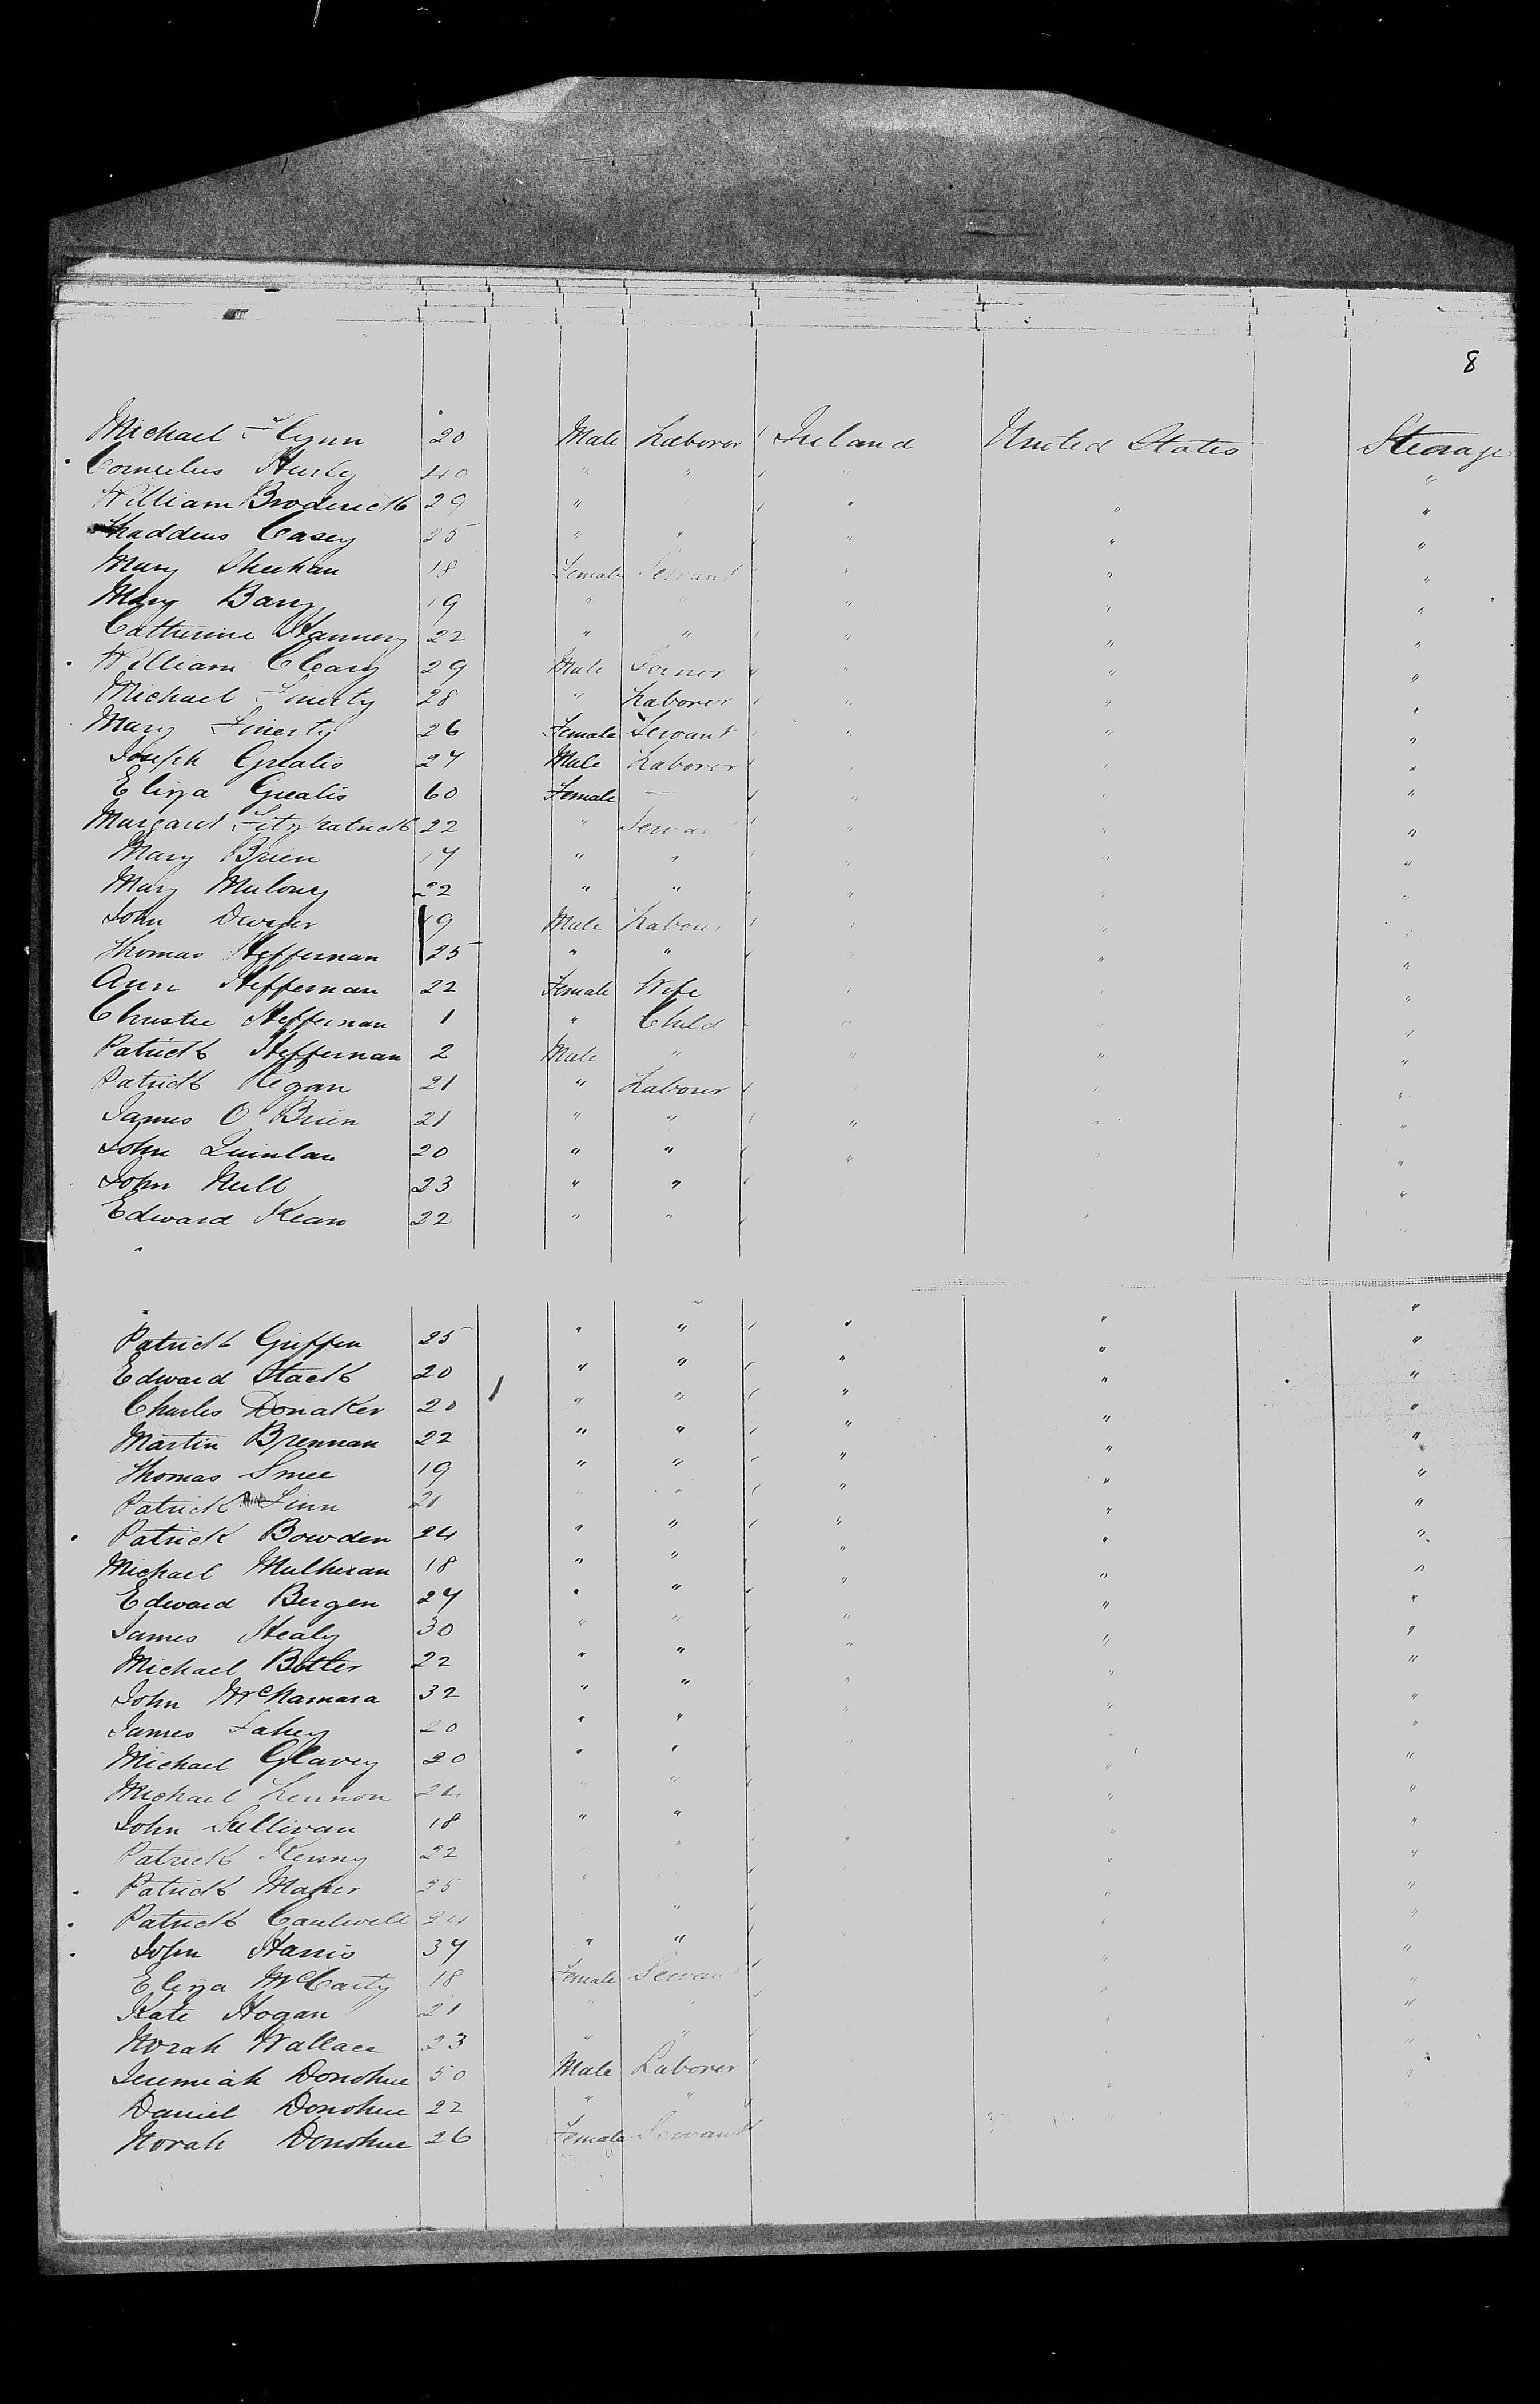 8
Michael Flynn 20 Male Laborer Ireland United States Steerage
Cornelius Hurley 40 " " " "
William Broderick 29 " " " "
Thaddeus Casey 25 " " " " "
Mary Sheehan 18 Female Servant " " "
Mary Barry 19 " " " "
Catherine Flannery 22 " " " " "
William Cleary 29 Male Joiner " " "
Michael Finerty 28 " Laborer " " "
Mary Finerty 26 Female Servant " " "
Joseph Grealis 27 Male Laborer " " "
Eliza Grealis 60 Female — " " "
Margaret Fitzpatrick 22 " Servant " " "
Mary Brien 17 " " " " "
Mary Mulony 22 " " " " "
John Dwyer 19 Male Labour " " "
Thomas Heffernan 25 " " " " "
Ann Heffernan 22 Female Wife " " "
Christie Heffernan 1 " Child " " "
Patrick Heffernan 2 Male " " " "
Patrick Regan 21 " Labourer " "
James O Brien 21 " " " " "
John Quinlan 20 " " " " "
John Neill 23 " " "
Edward Kean 22 " " "
Patrick Griffen 25 " " " " "
Edward Stack 20 " " " " "
Charles Donaker 20 " " " " "
Martin Brennan 22 " " " " "
Thomas Smee 19 " " " " "
Patrick Linn 21 " " " "
Patrick Bowden 24 " " " " "
Michael Mulheran 18 " " " " "
Edward Bergen 27 " " " " "
James Healy 30 " " " " "
Michael Butler 22 " " " "
John McNamara 32 " " " " "
James Fahey 20 " " " "
Michael Glavey 20 " " " " "
Michael Lennon 24 " " "
John Sullivan 18 " " " "
Patrick Kenny 22 " " " "
Patrick Maher 25 " " "
Patrick Caulwell 24 " " "
John Harris 37 " " " "
Eliza McCarty 18 Female Servant " "
Kate Hogan 21 " " " "
Norah Wallace 23 " " "
Jeremiah Donohue 50 Male Laborer " "
Daniel Donohue 22 " " "
Norah Donohue 26 Female Servant